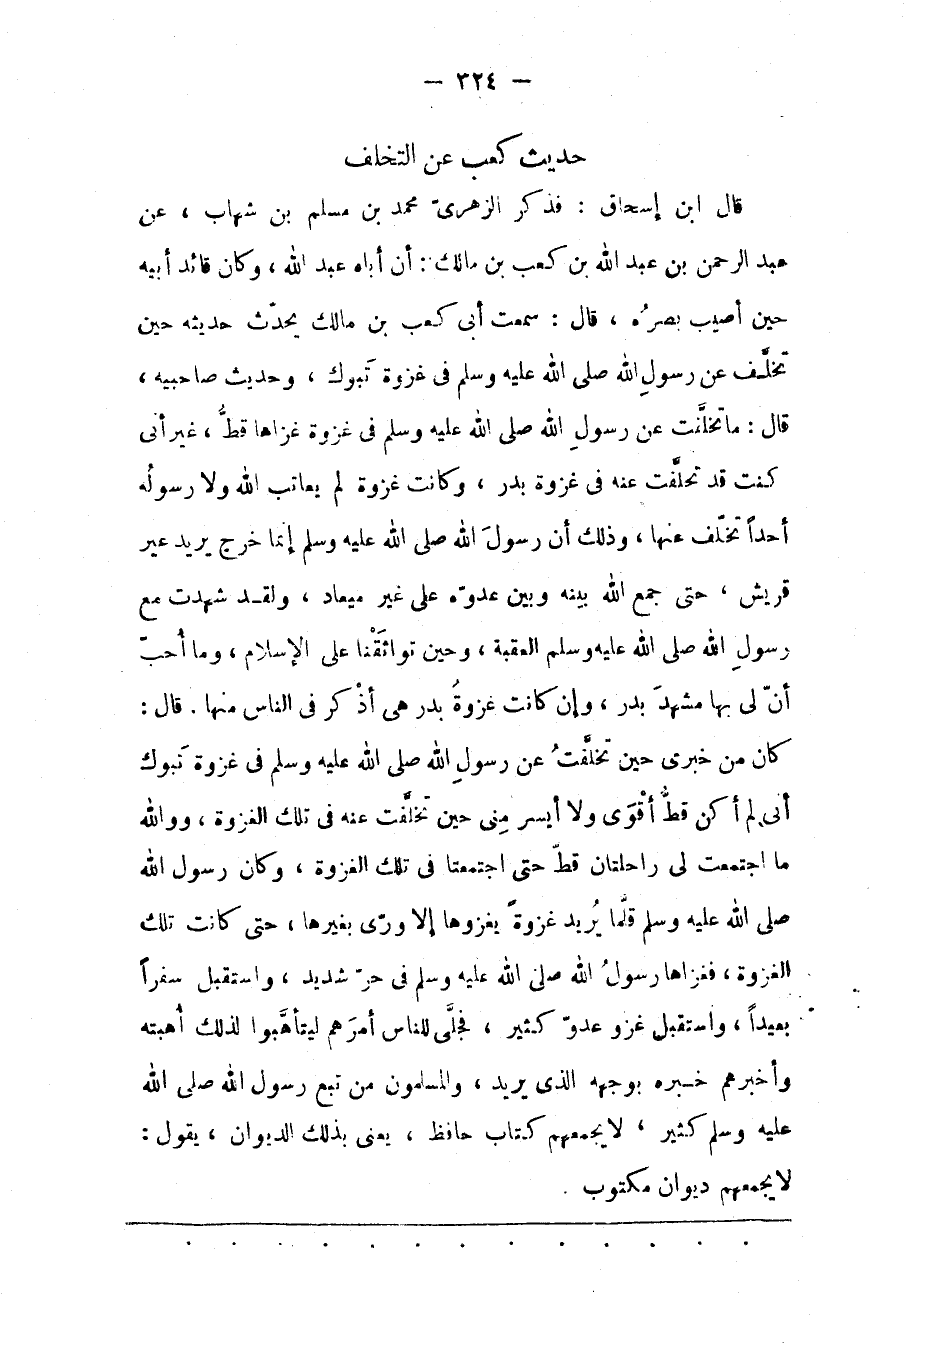 — ٣٢٤ —
حديث كعب عن التخلف
قال ابن إسحاق : فذكر الزهرىّ محمد بن مسلم بن شهاب ، عن
عبد الرحمن بن عبد الله بن كعب بن مالك : أن أباه عبد الله ، وكان قائد أبيه
حين أصيب بصرُه ، قال : سمعت أبى كعب بن مالك يحدّث حديثه حين
تخلَّف عن رسولِ الله صلى الله عليه وسلم فى غزوة تَبوك ، وحديث صاحبيه ،
قال : ما تخلَّفت عن رسولِ الله صلى الله عليه وسلم فى غزوة غزاها قطُّ ، غير أنى
كنت قد تخلَّفت عنه فى غزوة بدر ، وكانت غزوة لم يعاتب الله ولا رسولُه
أحداً تخلّف عنها ، وذلك أن رسولَ الله صلى الله عليه وسلم إنما خرج يريد عير
قريش ، حتى جمع الله بينه وبين عدوّه على غير ميعاد ، ولقد شهدت مع
رسولِ الله صلى الله عليه وسلم العقبة ، وحين تواثَقْنا على الإسلام ، وما أُحبّ
أنّ لى بها مشهدَ بدر ، وإن كانت غزوةُ بدر هى أذْكر فى الناس منها . قال :
كان من خبرى حين تخلَّفتُ عن رسولِ الله صلى الله عليه وسلم فى غزوة تَبوك
أنى لم أكن قطُّ أقْوَى ولا أيسر مِنى حين تخلَّفت عنه فى تلك الغزوة ، ووالله
ما اجتمعت لى راحلتان قطّ حتى اجتمعتا فى تلك الغزوة ، وكان رسول الله
صلى الله عليه وسلم قلَّما يُريد غزوةً يغزوها إلا ورّى بغيرها ، حتى كانت تلك
الغزوة ، فغزاها رسولُ الله صلى الله عليه وسلم فى حرّ شديد ، واستقبل سفراً
بعيداً ، واستقبل غزو عدوّ كثير ، فجلَّى للناس أمرَهم ليتأهَّبوا لذلك أُهبته
وأخبرهم خبره بوجهه الذى يريد ، والمسلمون من تبع رسول الله صلى الله
عليه وسلم كثير ، لا يجمعهم كتاب حافظ ، يعنى بذلك الديوان ، يقول :
لا يجمعهم ديوان مكتوب .
. . . . . . . . . . . . .